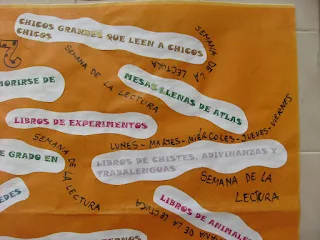 CHICOS GRANDES QUE LEEN A CHICOS
CHICOS
SEMANA DE LA LECTURA
SEMANA DE LA LECTURA
MORIRSE DE
MESAS LLENAS DE ATLAS
LIBROS DE EXPERIMENTOS
LUNES - MARTES - MIÉRCOLES - JUEVES - VIERNES
SEMANA DE LA LECTURA
E GRADO EN
LIBROS DE CHISTES, ADIVINANZAS Y
TRABALENGUAS
SEMANA DE LA
LECTURA
EDES
LIBROS DE ANIMALE
SEMANA DE LA LECTURA
ERNOS